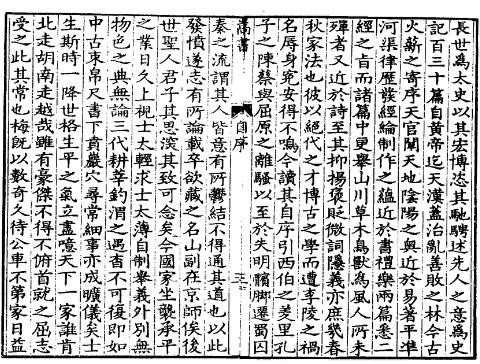 長世為太史以其宏博恣其馳騁述先人之意為史
記百三十篇自黃帝迄天漢蓋治亂善敗之林今古
火薪之寄序天官關天地陰陽之奧近於易著平準
河渠律歷發經綸制作之蘊近於書禮樂兩篇悉二
經之旨而諸篇中更舉山川草木鳥獸為風人所未
殫者又近於詩至其抑揚褒貶微詞隱義亦庶幾春
秋家法也彼以絕代之才博古之學而遭李陵之禍
名辱身宛安得不鳴今讀其自序引西伯之羑里孔
子之陳蔡與屈原之離騷以至於失明臏脚遷蜀囚
蒿書
自序
秦之流謂其人皆意有所鬱結不得通其道也以此
發憤遂志有所論載卒欲藏之名山副在京師俟後
世聖人君子其思深其致可念矣今國家坐襲承平
之業日久上視士太輕求士太薄自制舉義外別無
物色之典無論三代耕莘釣渭之遇杳不可復即如
中古束帛尺書下賁巖穴尋常細事亦成曠儀矣士
生斯時一降世格生平之氣立盡噫天下一家誰肯
北走胡南走越哉雖有豪傑不得不俯首就之屈志
受之此其常也梅既以數奇久待公車不第家日益